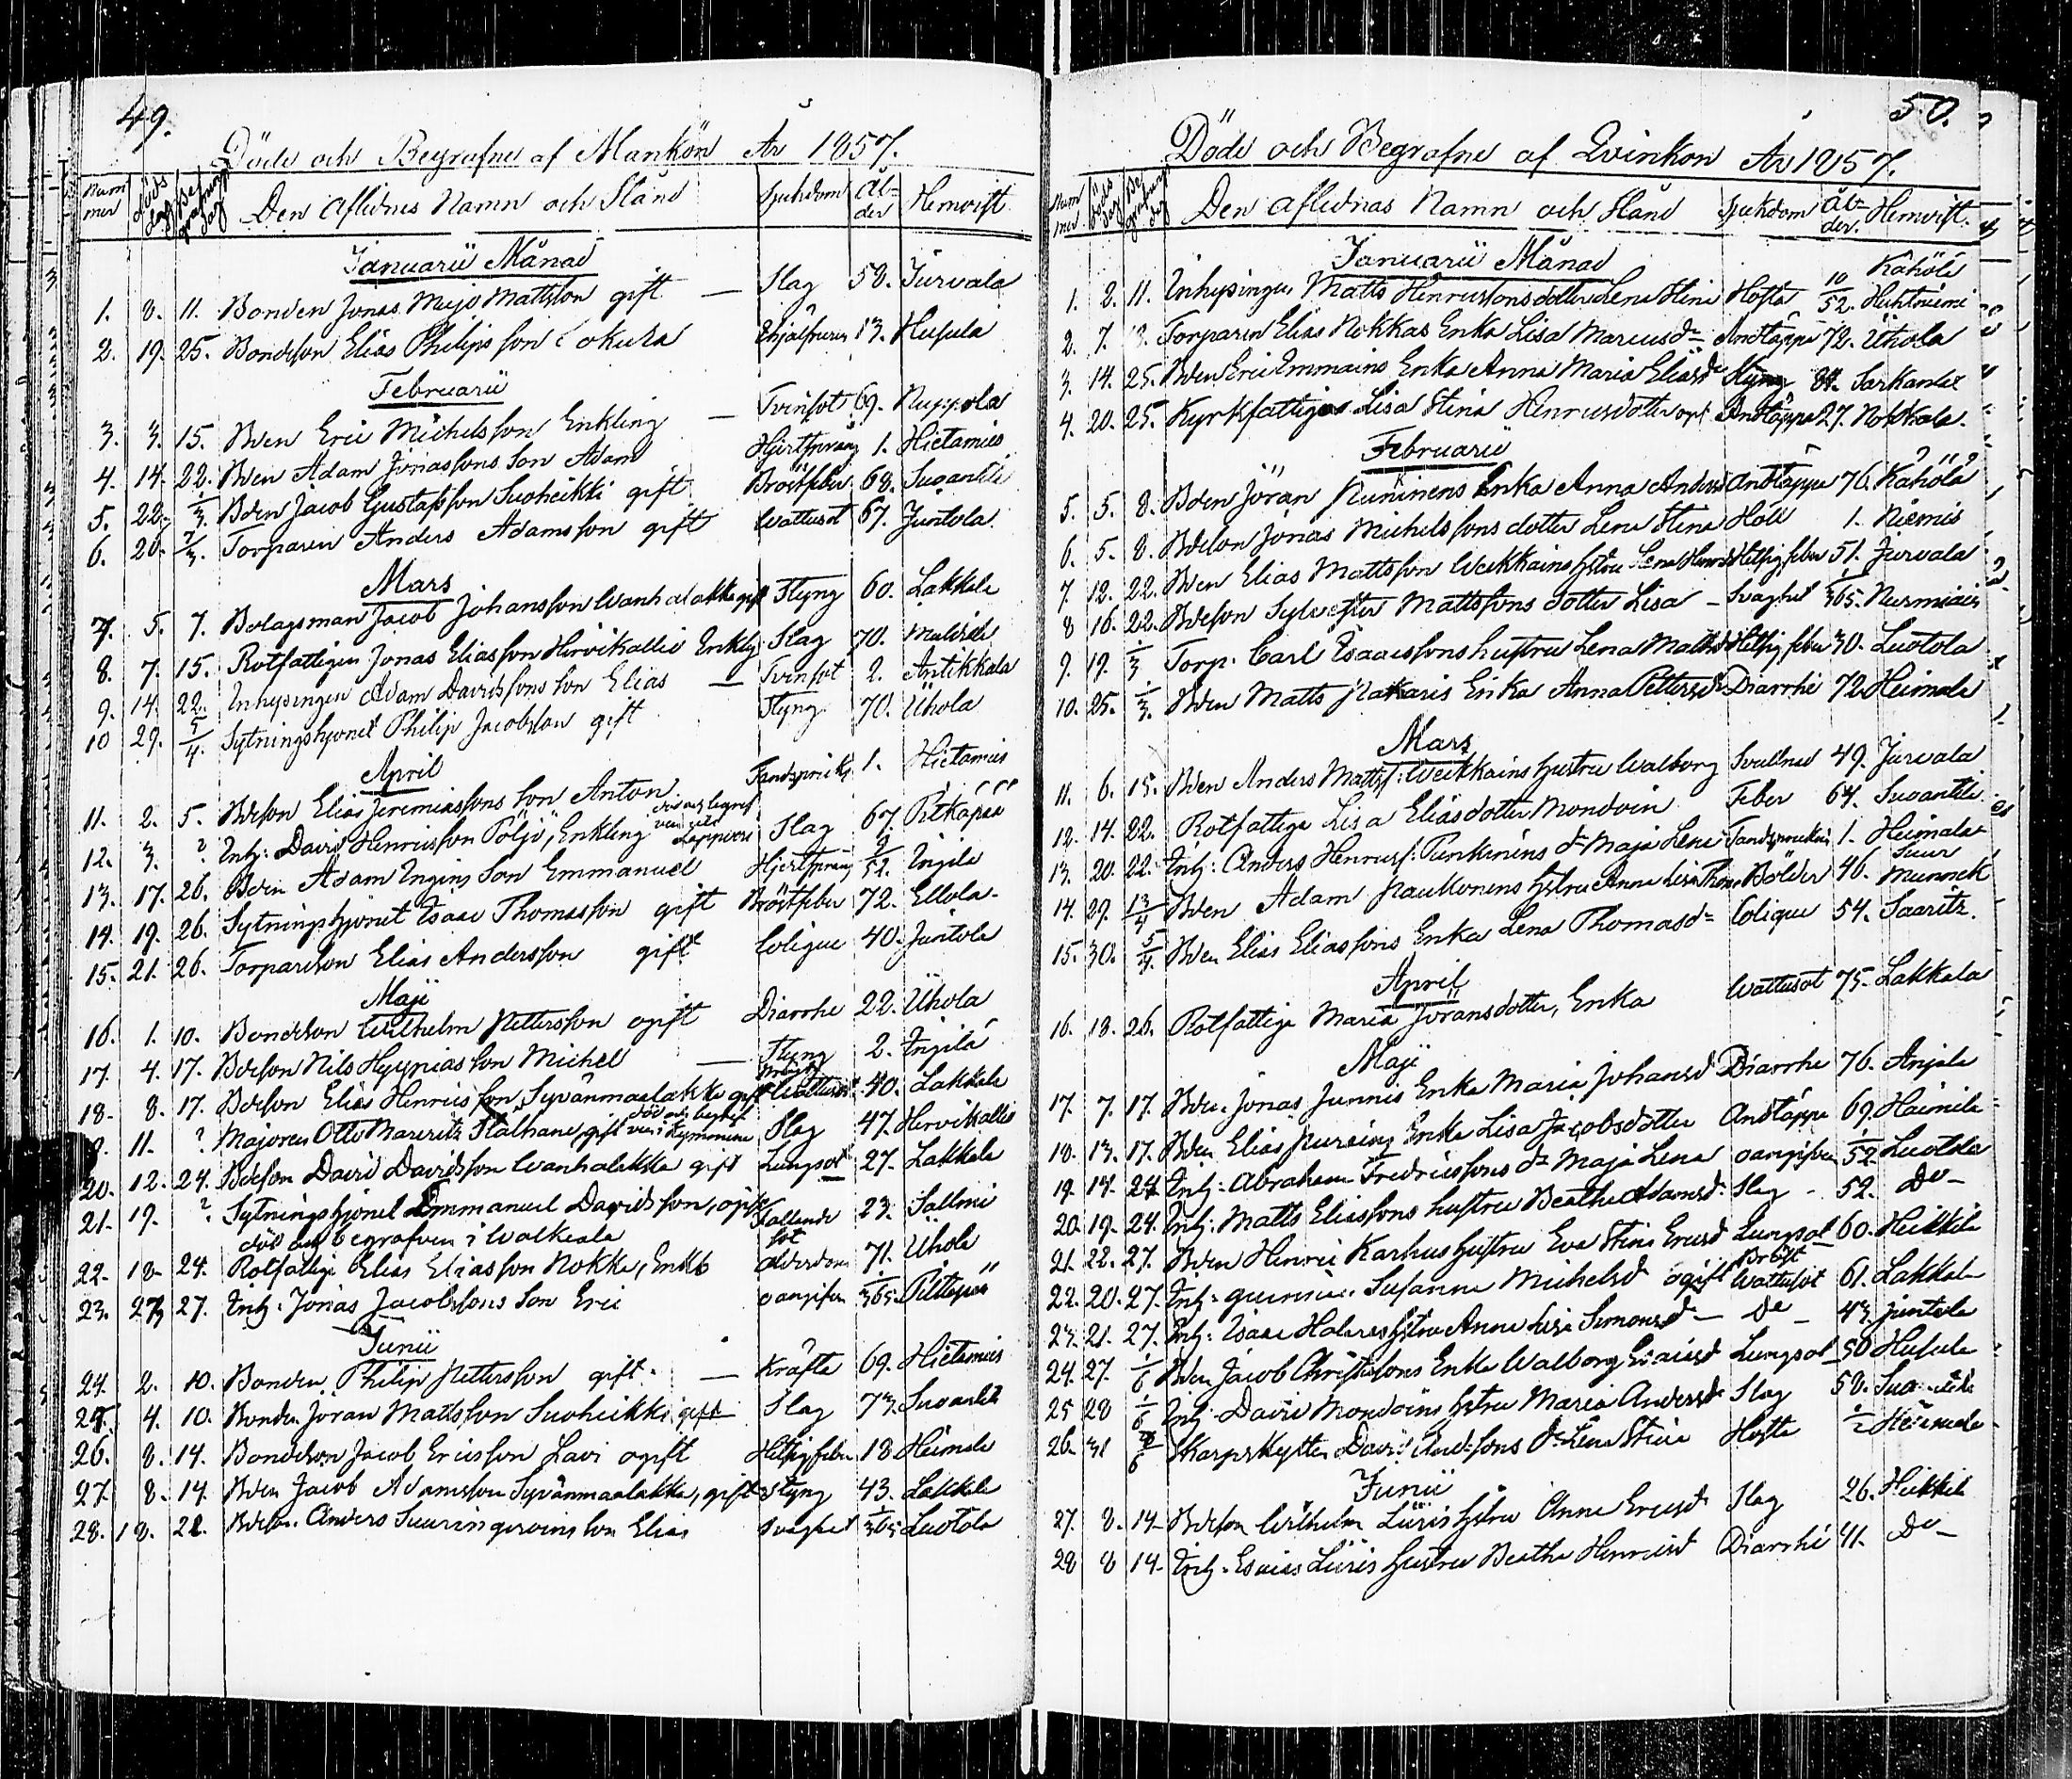 49.
Döde och Begrafne af Mankön År 1857.
Num mer Döds dag Be grafnings dag Den aflidnes Namn och Stånd Sjukdom Ål- der Hemvist
Januarii Månad
1. 8. 11. Bonden Jonas Mattsson gift — Slag 58. Jurvala
2. 19. 25. Bondeson Elias Philipsson 13. Husula
Februarii
3. 3. 15. Bden Eric Michelsson Enkling — Tvinsot 69. Nuppola
4. 14. 22. Bden Adam Jonassons Son Adam Hjertsprång 1. Hietamies
5. 22. 1/3. Bden Jacob Gustafsson Suoheikki gift Bröstfeber 68. Suoantila
6. 26. 7/3. Torparen Anders Adamsson gift Wattusot 67. Juntola
Mars
7. 5. 7. Bolagsman Jacob Johansson Wanhalakka gift Styng 60. Lakkala
8. 7. 15. Rotfattigen Jonas Eliasson Hirvikallio Enkling Slag 70.
9. 14. 22. Inhysingen Adam Davidssons Son Elias — Tvinsot 2. Antikkala
10 29. 5/4. Sytningshjonet Philip Jacobsson gift Styng 70. Uhola
April
11. 2. 5. Bdeson Elias Jeremiassons Son Anton Tandsprickn 1. Hietamies
12. 3. ? Inh: David Henricsson Pöljö, Enkling död och begraf Slag 67. Pitkäpää
13. 17. 26. Bden Adam Ingins Son Emmanuel Hjertsprång 2/52. Ingila
14. 19. 26. Sytningshjonet Isaac Thomasson gift Bröstfeber 72. Ellola
15. 21. 26. Torpareson Elias Andersson gift Colique 40. Juntola
Maji
16. 1. 10. Bondeson Wilhelm Pettersson ogift Diarrhe 22. Uhola
17. 4. 17. Bdeson Nils Hyyrias Son Michel — Styng 2. Ingilä
18. 8. 17. Bdeson Elias Henricsson Syvänmaalakka gift Bröst Wattusot 40. Lakkala
19. 11. ? Majoren Otto Mauritz Stålhane, gift död och begraf ven i Kymmene Slag 47. Hirvikallio
20. 12. 24. Bdeson David Davidsson Wanhalakka gift Lungsot 27. Lakkala
21. 19. ? Sytningshjonet Emmanuel Davidsson, ogift Fallande sot 23. Salmi
död och begrafven i Walkeala
22. 18. 24. Rotfattige Elias Eliasson Nokka, Enkl Ålderdom 71. Uhola
23. 23 27. Inh. Jonas Jacobssons Son Eric oangifven /365.
Junii
24. 2. 10. Bonden Philip Pettersson gift. — Kräfta 69. Hietamies
25. 4. 10. Bonden Jöran Mattsson Suoheikki, gift Slag 73. Suoantila
26. 8. 14. Bondeson Jacob Ericsson Lavi ogift Hetsigfeber 18 Heimala
27. 8. 14. Bden Jacob Adamsson Syvänmaalakka, gift Styng 43. Lakkala
28. 18. 21. Bdeson Anders Son Elias Svaghet /365 Luotola
50.
Döde och Begrafne af Qvinkön År 1857.
Num mer Döds dag Be grafnings dag Den aflidnas Namn och Stånd Sjukdom Ål- der. Hemvist.
Januarii Månad
1. 2. 11. Inhysingen Matts Henricssons dotter Lena Stina Hosta 10/52. Kähölä
2. 7. Torparen Elias Nokkas Enka Lisa Marcusd= Andtäppa 72. Uhola
3. 14. 25. Bden Eric Emmains Enka Anna Maria Eliasd Styng Sarkanla
4. 20. 25. Kyrkfattigas Lisa Stina Henricsdotter ogift Andtäppa 27. Nokkala
Februarii
5. 5. 8. Bden Jöran Enka Anna Andersd Andtäppa 76. Kähölä
6. 5. 8. Bdeson Jonas Michelssons dotter Lena Stina Håll 1. Niemis
7. 12. 22. Bden Elias Mattsson Weikkains hustru Lena Henricsd Hetsigfeber 51. Jurvala
8 16. 22. Bdeson Sylvester Mattssons dotter Lisa — Svaghet /365. Nurmiais
9. 19. 1/3 Torp. Carl Isaacssons hustru Lena Mattsd Hetsig feber 30. Luotola
10. 25. 1/3. Bden Matts Enka Anna Pettersd Diarrhé 72. Heimala
Mars
11. 6. 15. Bden Anders Mattss: Weikkains hustru Walborg Svullnad 49. Jurvala
12. 14. 22. Rotfattige Lisa Eliasdotter Mondoin Feber 64. Suoantila
13. 20. 22. Inh: Anders Henricss: dr Maja Lena Tandsprickn 1. Heimala
14. 29. 13/4 Bden Adam Paukonens hstru Anna Lisa Bölder 46. Suur Munnek
15. 30. 5/4. Bden Elias Eliassons Enka Lena Thomasd= Colique 54. Saaritz.
April
16. 18. 26. Rotfattige Maria Jöransdotter, Enka Wattusot 75. Lakkala
Maji
17. 7. 17. Bden Jonas Junnis Enka Maria Johansd Diarrhe 76. Anjala
18. 13. 17. Bden Elias Enka Lisa Jacobsdotter Andtäppa 69. Haimila
19. 14. 24 Inh: Abraham Fredricssons dr Maja Lena oangifven /52. Luotola
20. 19. 24. Inh: Matts Eliassons hustru Beatha Adamsd. Slag 52. Do—
21. 22. 27. Bden Henric Karhus hustru Eva Stina Ericsd Lungsot 60. Heikkila
22. 20. 27. Inh= Susanna Michelsd ogift Bröst Wattusot 61. Lakkala
23. 21. 27. Inh: Isaac hstru Anna Lisa Simonsd — Do — 43. Juntola
24. 27. 1/6 Bden Jacob Christerssons Enka Walborg Esaiasd Lungsot 50 Husula
25 28 1/6 Inh: David Mondoins hstru Maria Andersd Slag 58.
26. 31 /6 Skarpskytten David dr Lena Stina Hosta Heimala
Junii
27. 8. 14. Bdeson Wilhelm Liiris hstru Anna Ericsd Slag 26. Heikkila
28 8 14. Inh. Esaias Liiris hustru Beatha Henricsd Diarrhé 41. Do—